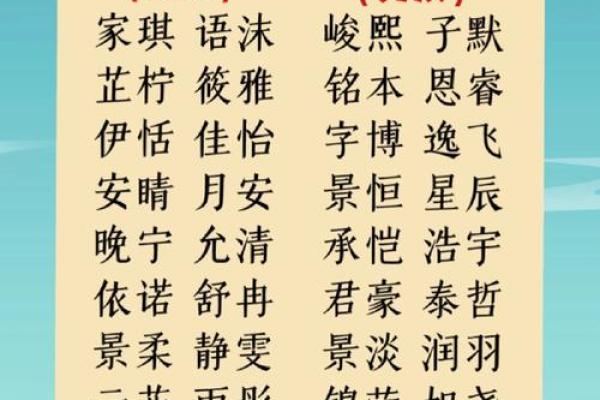 家琪 语沫 峻熙 子默
芷柠 筱雅 铭本 恩睿
伊恬 佳怡 字博 逸飞
安晴 月安 景恒 星辰
晚宁 允清 承恺 浩宇
依诺 舒冉 君豪 泰哲
景柔 静雯 景淡 润羽